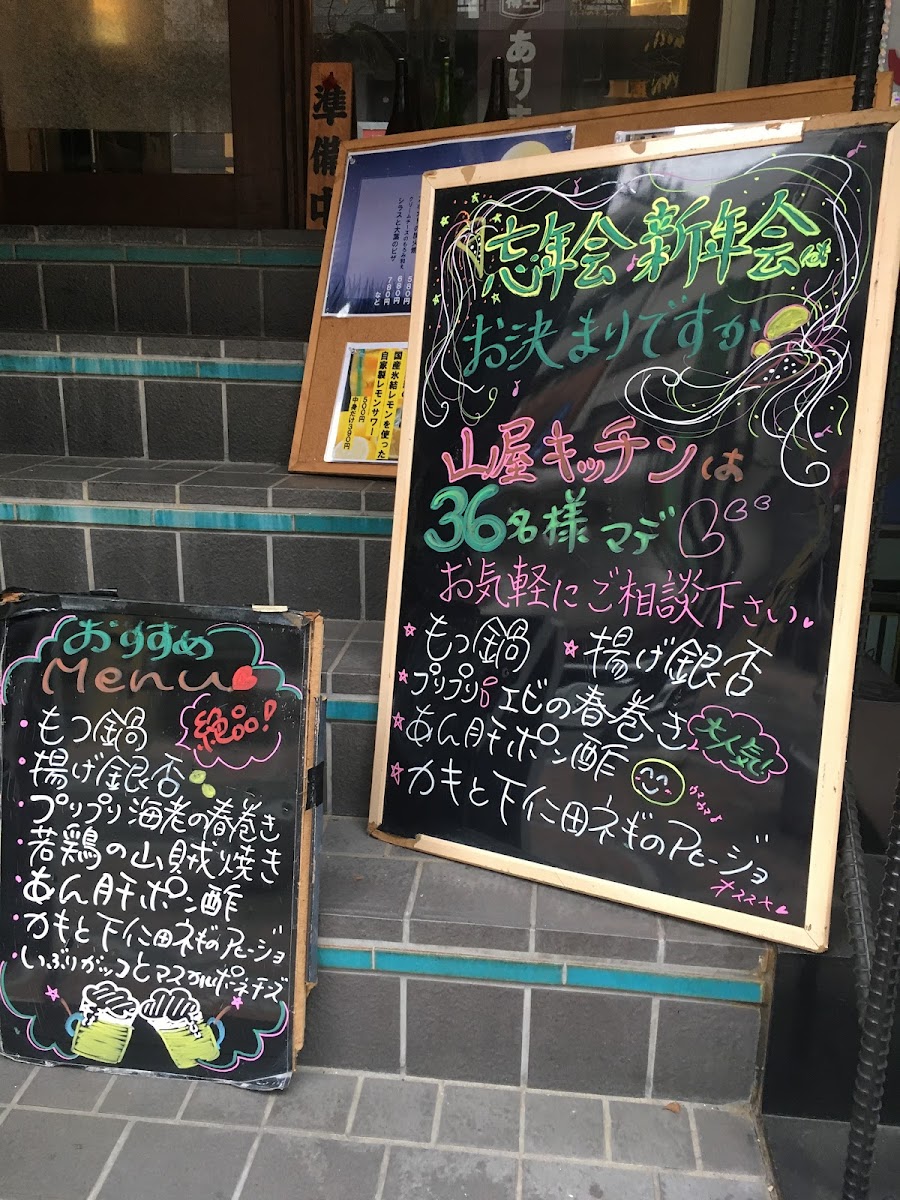 準備中
あり
シラスと大葉のピザ
580円
680円
780円
など
国産氷結レモンを使った
自家製レモンサワー
500円
中身だけ390円
忘年会 新年会は
お決まりですか
山屋キッチンは
36名様マデ
お気軽にご相談下さい
もつ鍋
揚げ銀杏
プリプリエビの春巻き
大人気!
あん肝ポン酢
カキと下仁田ネギのアヒージョ
オススメ
おすすめ
Menu
絶品!
もつ鍋
揚げ銀杏
プリプリ海老の春巻き
若鶏の山賊焼き
あん肝ポン酢
カキと下仁田ネギのアヒージョ
いぶりガッコとマスカルポーネチーズ